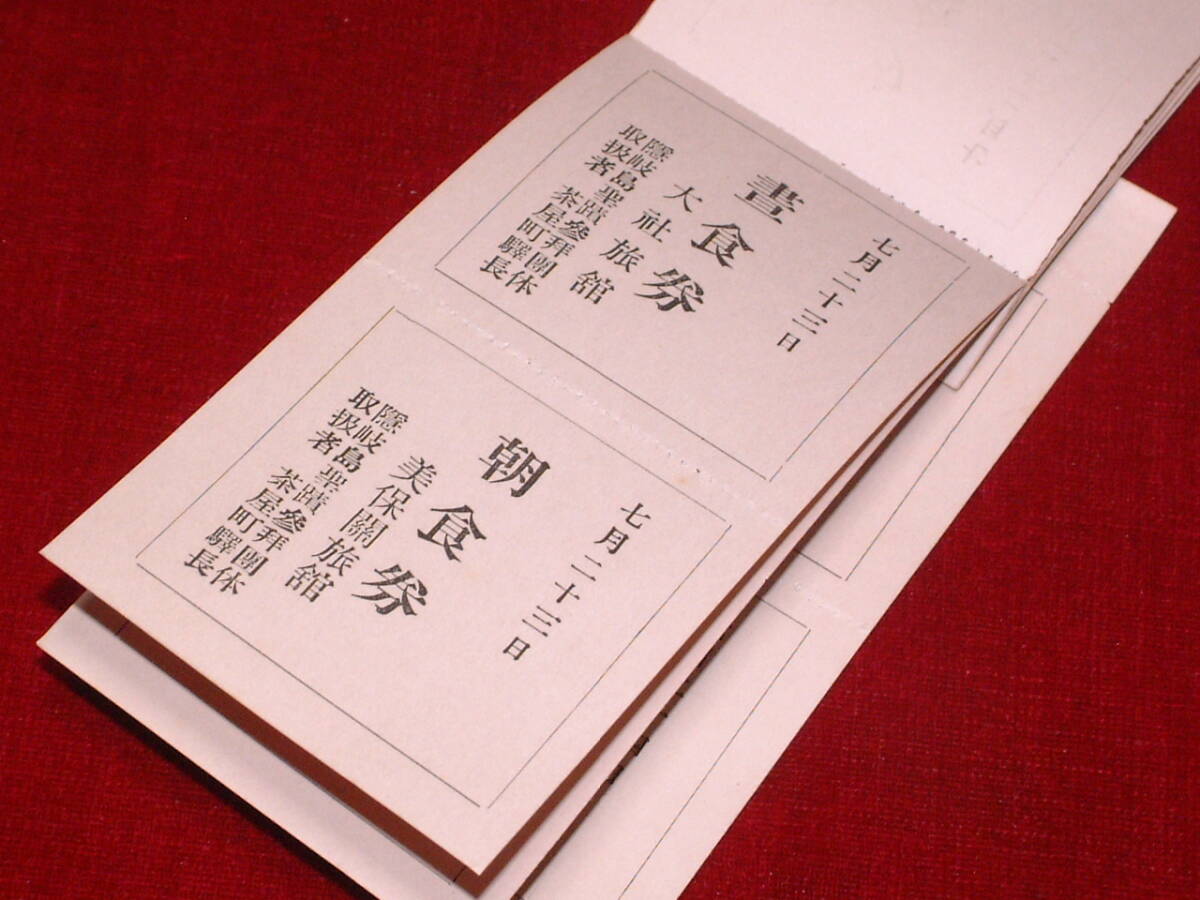 七月二十三日
晝食券
大社旅舘
隱岐島聖蹟參拜團体
取扱者 茶屋町驛長
七月二十三日
朝食券
美保關旅舘
隱岐島聖蹟參拜團体
取扱者 茶屋町驛長